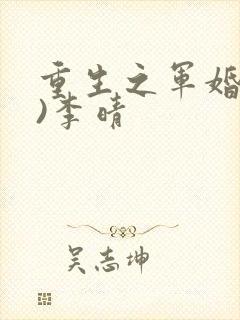 重生之军婚
)李晴
吴志坤